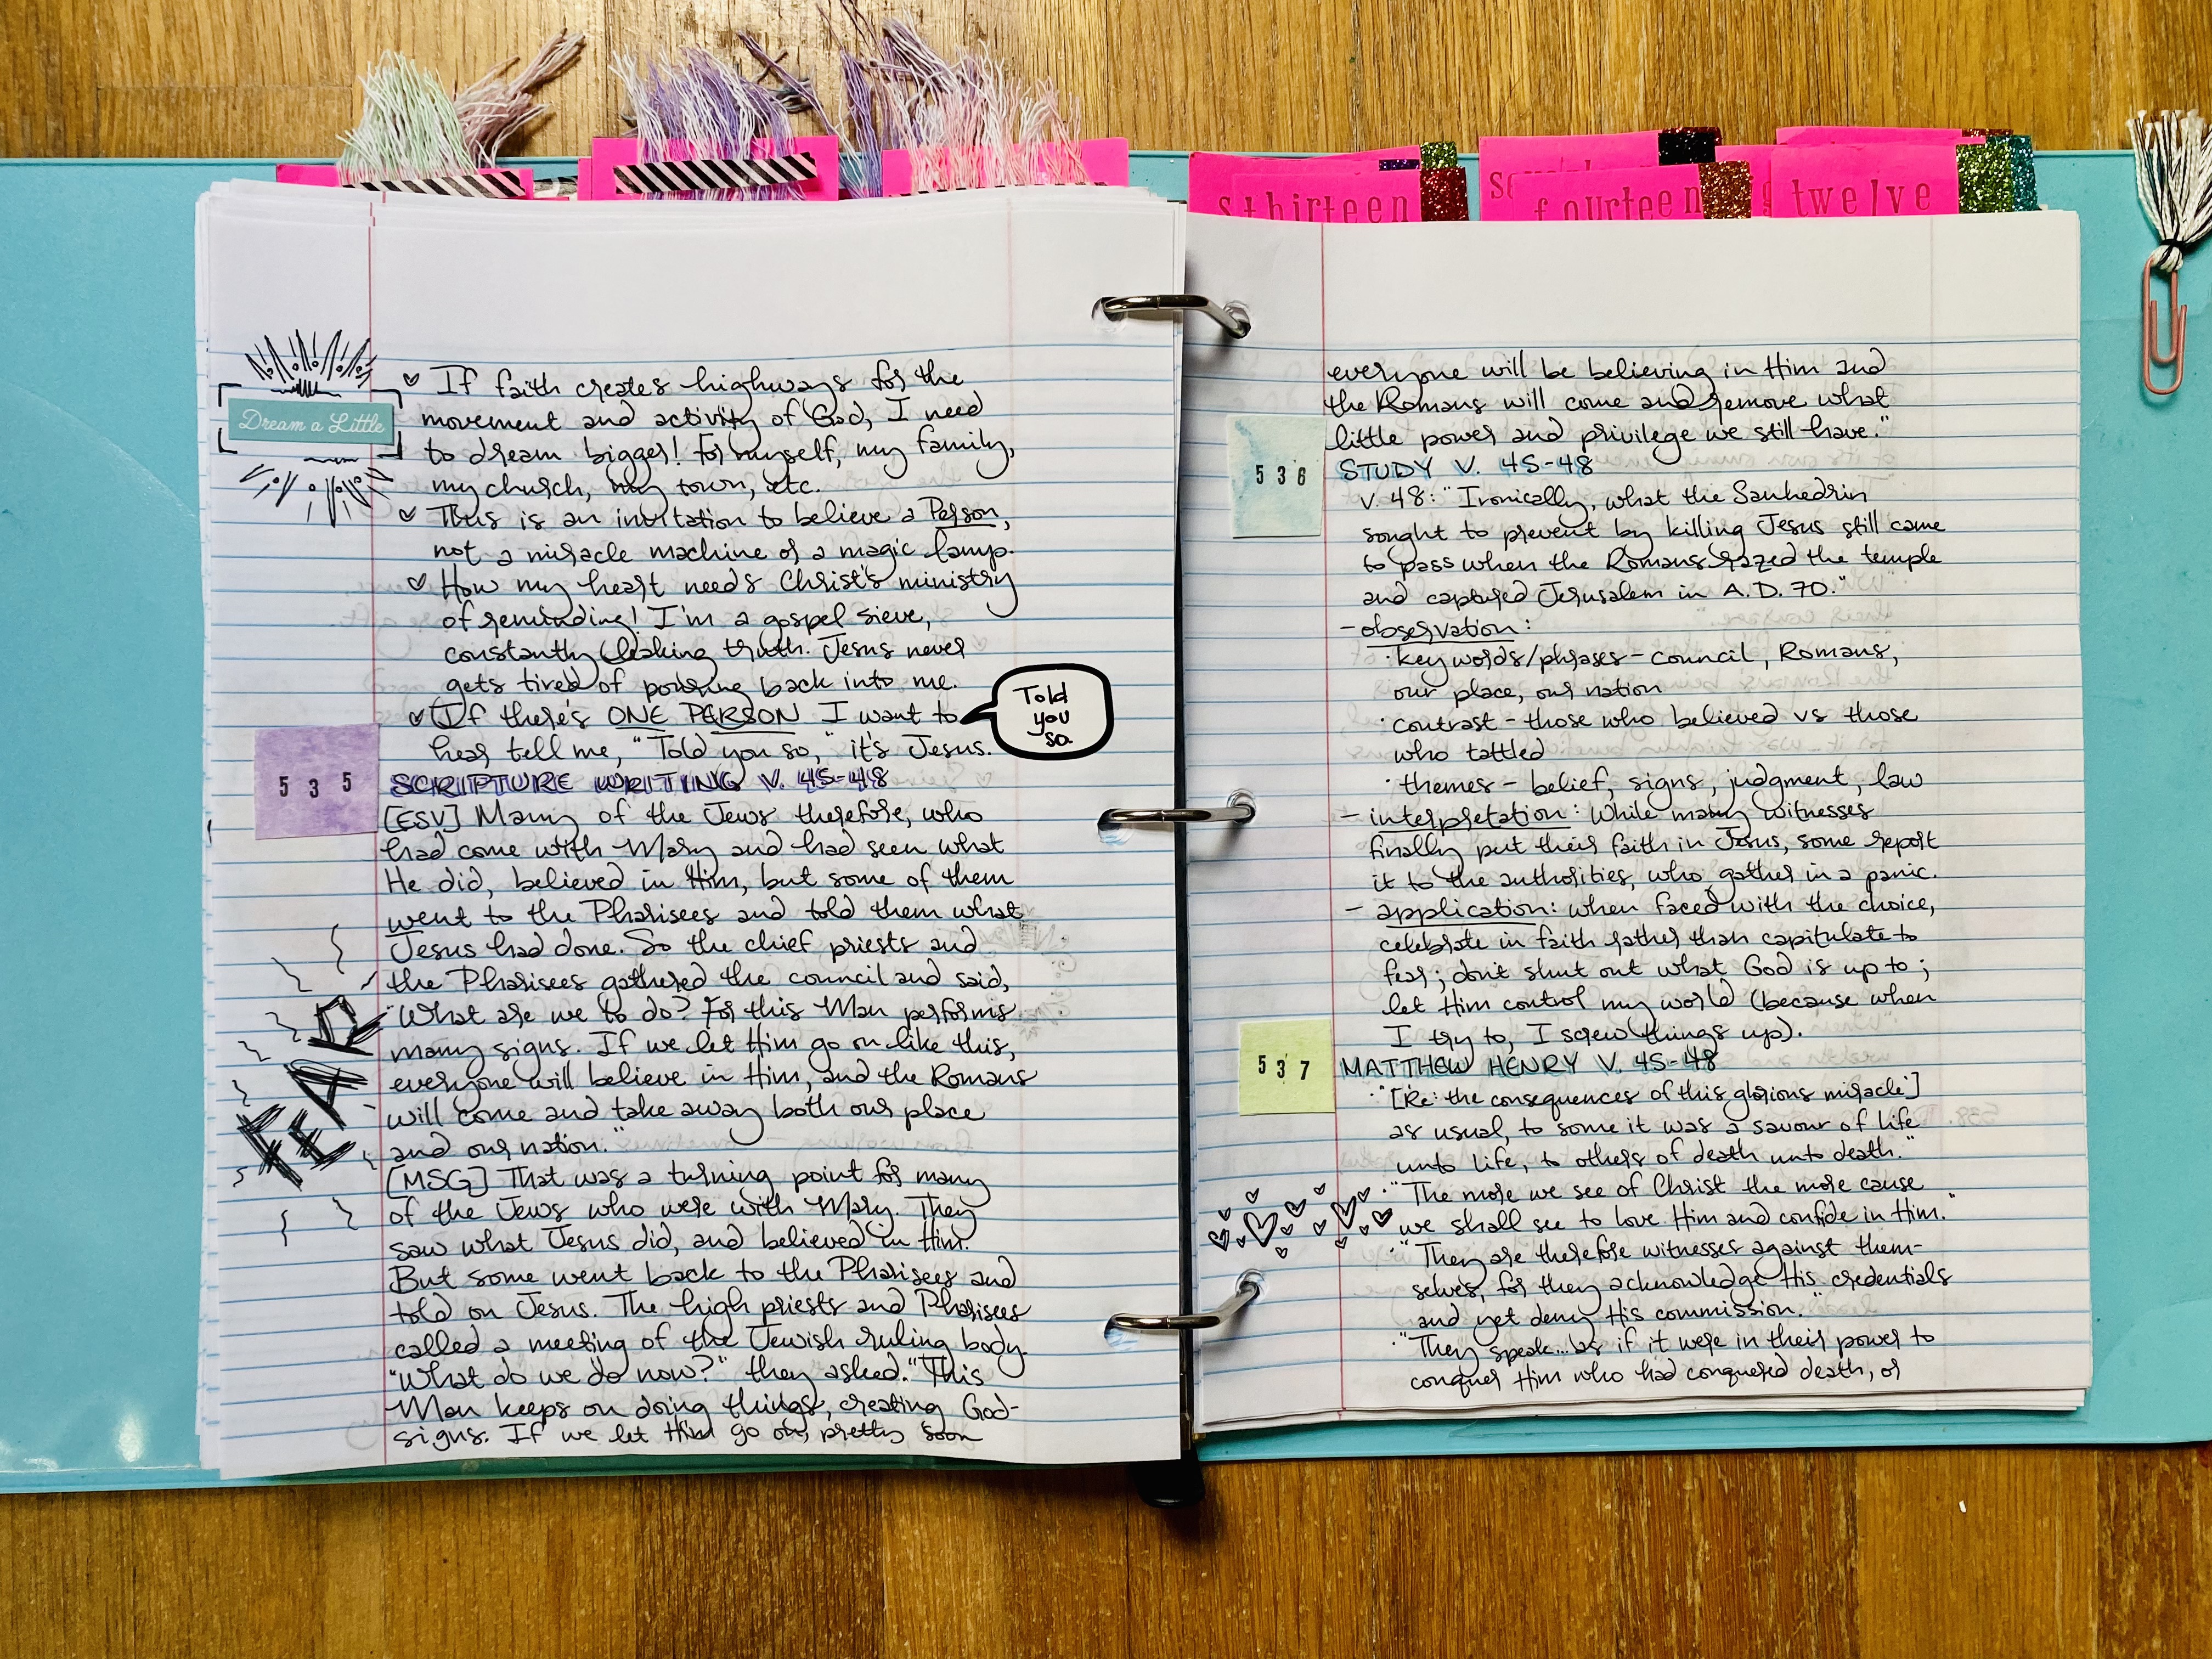 sthirteen
fourteen
twelve
Dream a Little
♡ If faith creates highways for the
movement and activity of God, I need
to dream bigger! For myself, my family,
my church, my town, etc.
♡ This is an invitation to believe a Person,
not a miracle machine or a magic lamp.
♡ How my heart needs Christ's ministry
of reminding! I'm a gospel sieve,
constantly leaking truth. Jesus never
gets tired of pouring back into me.
♡ If there's ONE PERSON I want to
hear tell me, "Told you so," it's Jesus.
Told
you
so.
535
SCRIPTURE WRITING V. 45-48
[ESV] Many of the Jews therefore, who
had come with Mary and had seen what
He did, believed in Him, but some of them
went to the Pharisees and told them what
Jesus had done. So the chief priests and
the Pharisees gathered the council and said,
"What are we to do? For this Man performs
many signs. If we let Him go on like this,
everyone will believe in Him, and the Romans
will come and take away both our place
and our nation."
FEAR
[MSG] That was a turning point for many
of the Jews who were with Mary. They
saw what Jesus did, and believed in Him.
But some went back to the Pharisees and
told on Jesus. The high priests and Pharisees
called a meeting of the Jewish ruling body.
"What do we do now?" they asked. "This
Man keeps on doing things, creating God-
signs. If we let Him go on, pretty soon
everyone will be believing in Him and
the Romans will come and remove what
little power and privilege we still have."
536
STUDY V. 45-48
v. 48: "Ironically, what the Sanhedrin
sought to prevent by killing Jesus still came
to pass when the Romans razed the temple
and captured Jerusalem in A.D. 70."
- observation:
· key words/phrases - council, Romans,
our place, our nation
· contrast - those who believed vs those
who tattled
· themes - belief, signs, judgment, law
- interpretation: while many witnesses
finally put their faith in Jesus, some report
it to the authorities, who gather in a panic.
- application: when faced with the choice,
celebrate in faith rather than capitulate to
fear; don't shut out what God is up to;
let Him control my world (because when
I try to, I screw things up).
537
MATTHEW HENRY V. 45-48
· "[Re: the consequences of this glorious miracle]
as usual, to some it was a savour of life
unto life, to others of death unto death."
· "The more we see of Christ the more cause
we shall see to love Him and confide in Him."
· "They are therefore witnesses against them-
selves, for they acknowledge His credentials
and yet deny His commission."
· "They speak...as if it were in their power to
conquer Him who had conquered death, or